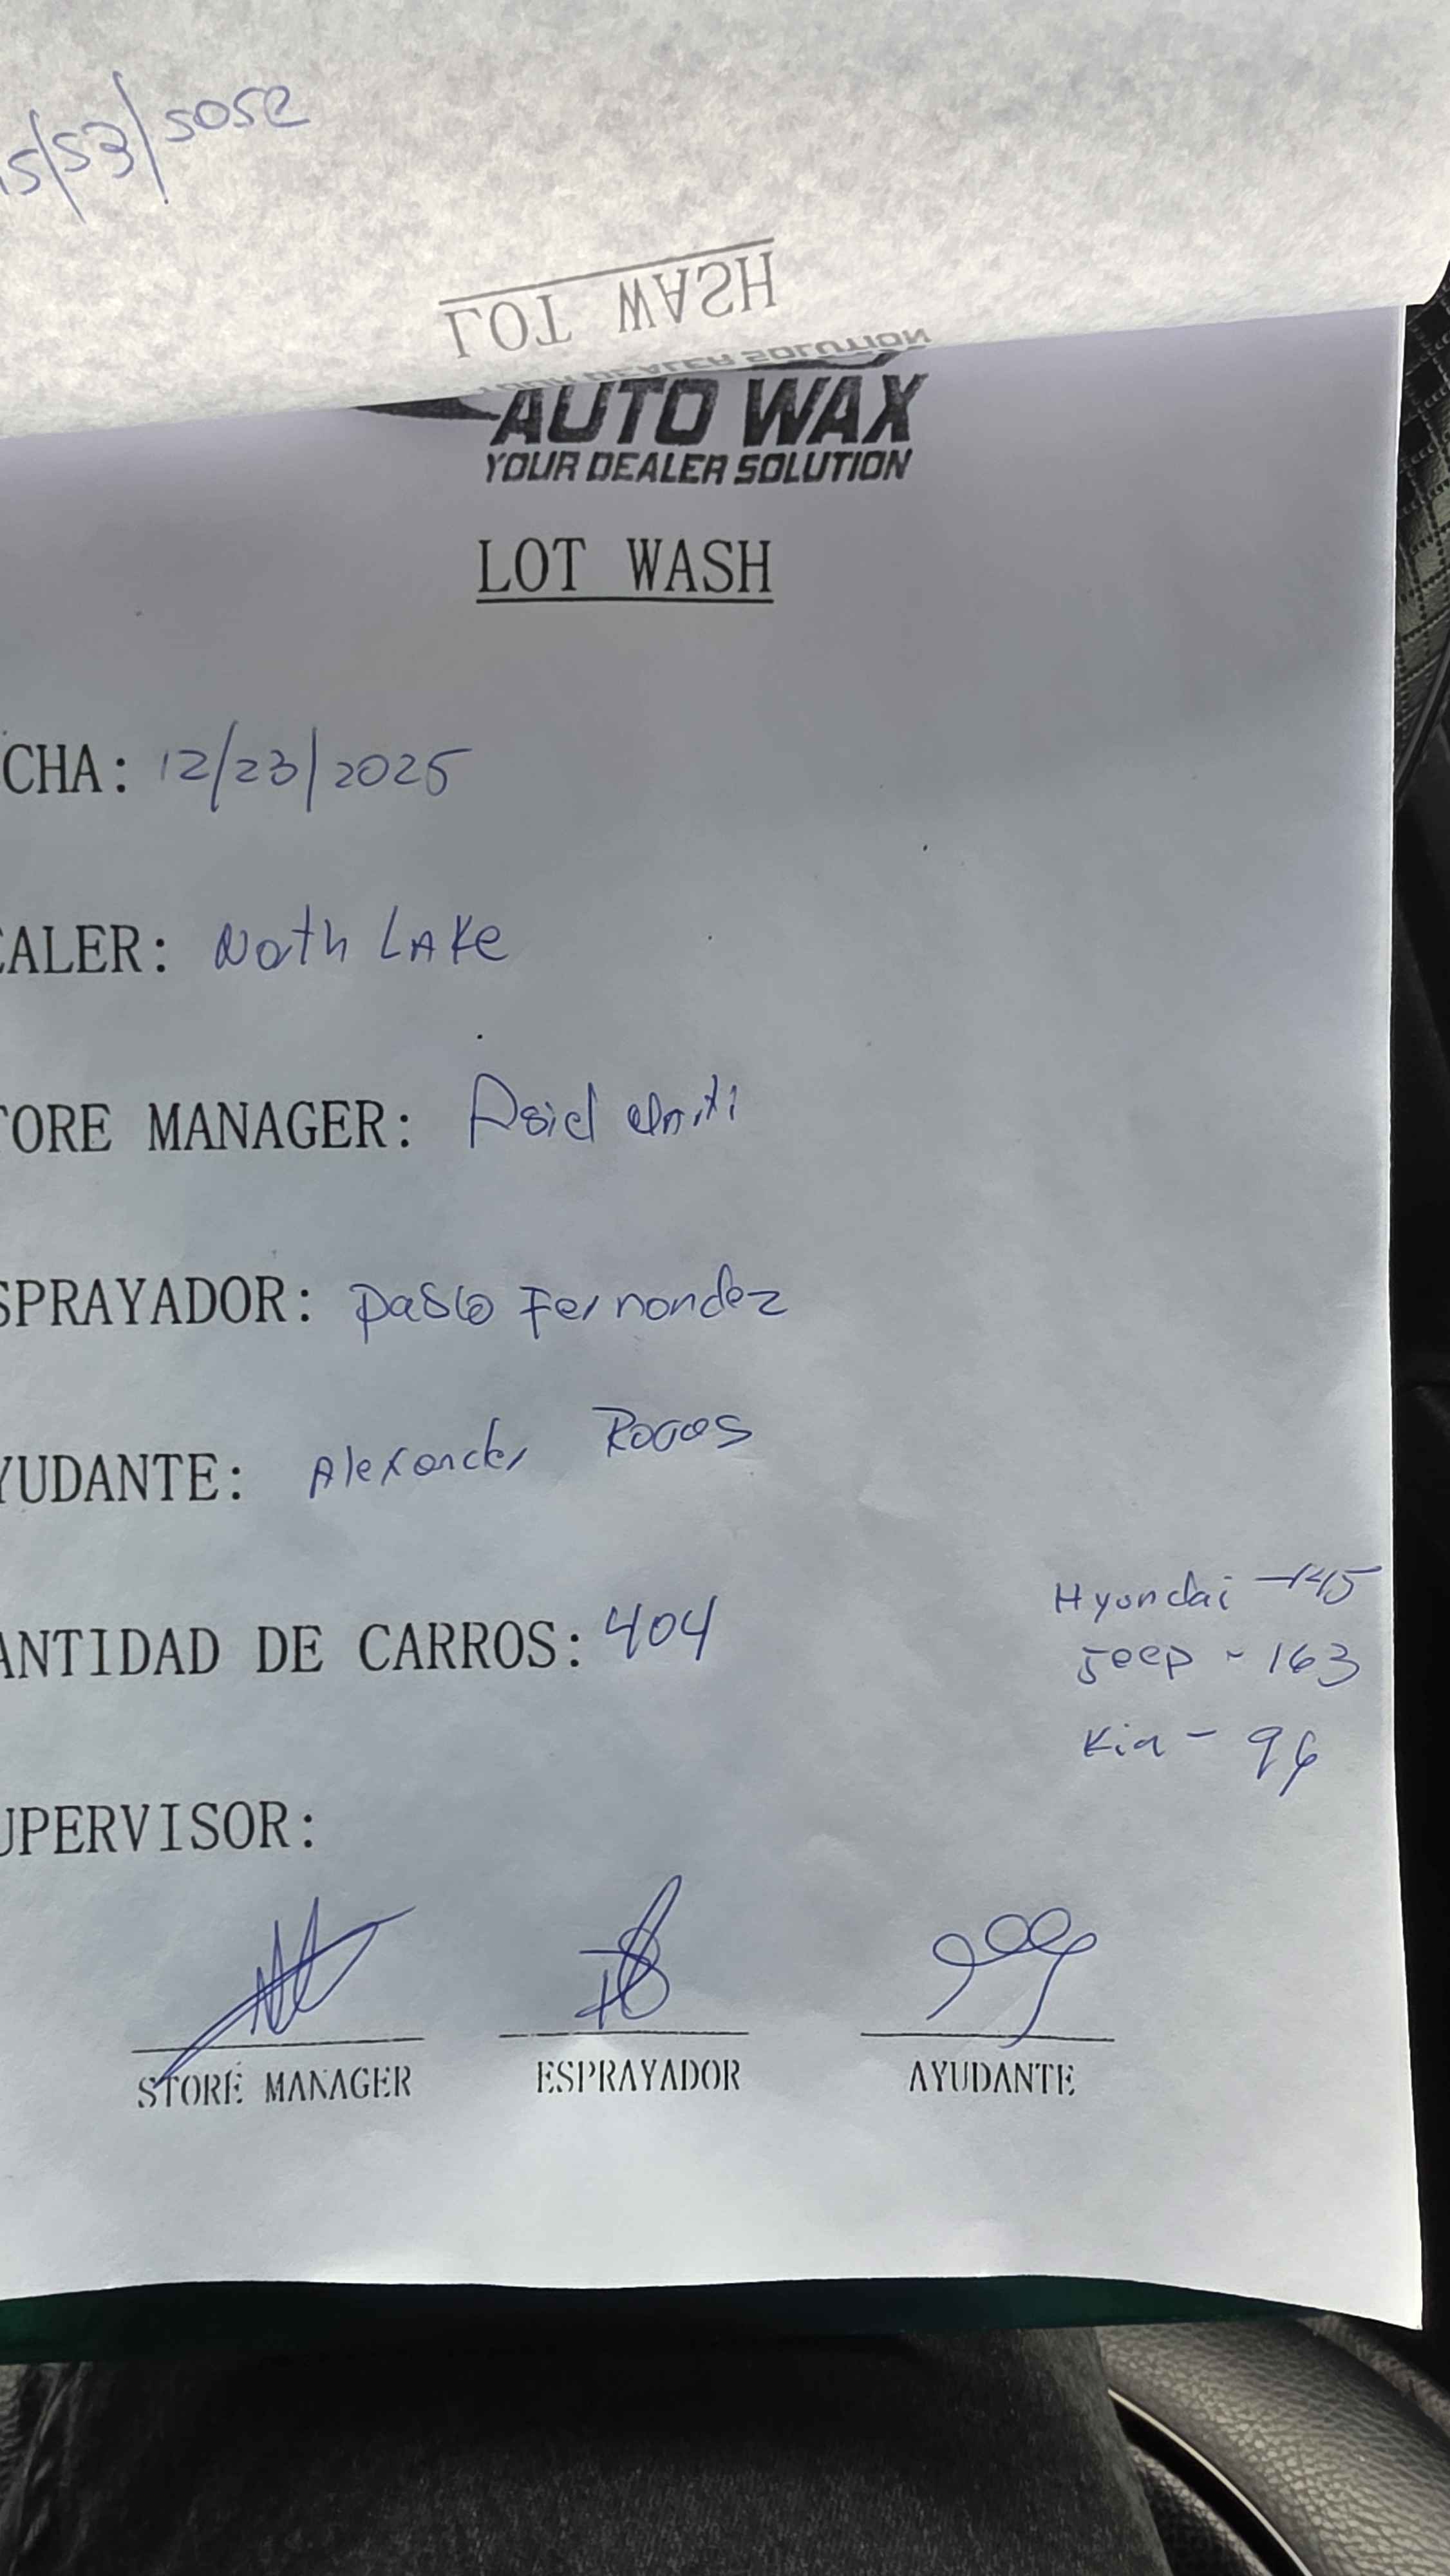 15/23/2025
LOT WASH
YOUR DEALER SOLUTION
AUTO WAX
YOUR DEALER SOLUTION
LOT WASH
CHA: 12/23/2025
EALER: Noth Lake
TORE MANAGER: Asiel
SPRAYADOR: Pablo Fernandez
YUDANTE: Alexander Rocas
ANTIDAD DE CARROS: 404
Hyundai - 145
Jeep - 163
Kia - 96
UPERVISOR:
STORE MANAGER ESPRAYADOR AYUDANTE